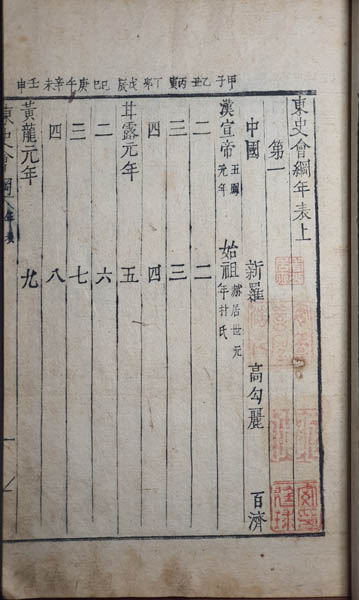 甲子 乙丑 丙寅 丁卯 戊辰 己巳 庚午 辛未 壬申
東史會綱年表上
第一
中國 新羅 高勾麗 百濟
漢宣帝 五鳳元年 始祖 赫居世元年朴氏
二 二
三 三
四 四
甘露元年 五
二 六
三 七
四 八
黃龍元年 九
東史會綱 年表